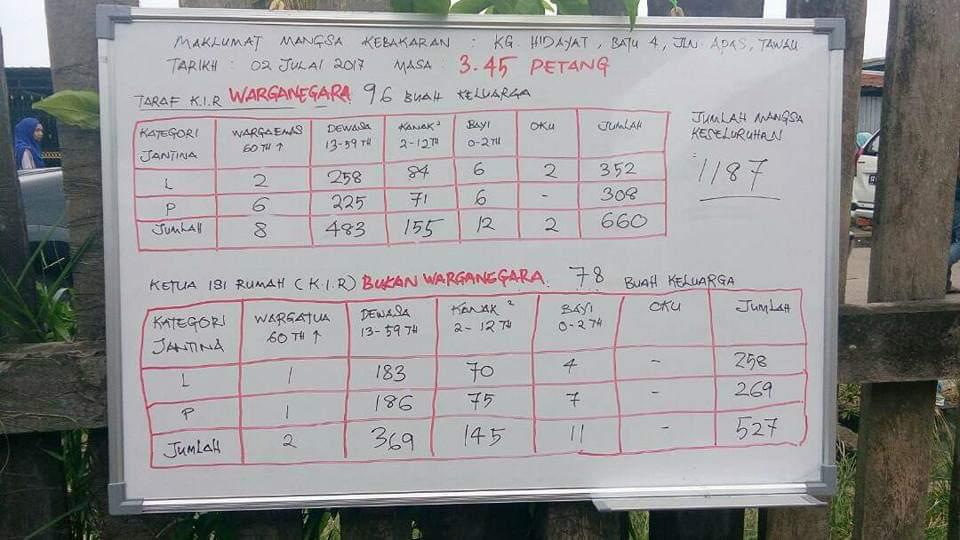 MAKLUMAT MANGSA KEBAKARAN : KG. HIDAYAT, BATU 4, JLN. APAS, TAWAU
TARIKH : 02 JULAI 2017 MASA : 3.45 PETANG
TARAF K.I.R WARGANEGARA 96 BUAH KELUARGA
KATEGORI JANTINA WARGAEMAS 60 TH ↑ DEWASA 13-59 TH KANAK² 2-12 TH BAYI 0-2 TH OKU JUMLAH
L 2 258 84 6 2 352
P 6 225 71 6 - 308
JUMLAH 8 483 155 12 2 660
JUMLAH MANGSA
KESELURUHAN
: 1187
KETUA ISI RUMAH (K.I.R) BUKAN WARGANEGARA. 78 BUAH KELUARGA
KATEGORI JANTINA WARGATUA 60 TH ↑ DEWASA 13-59 TH KANAK² 2-12 TH BAYI 0-2 TH OKU JUMLAH
L 1 183 70 4 - 258
P 1 186 75 7 - 269
JUMLAH 2 369 145 11 - 527